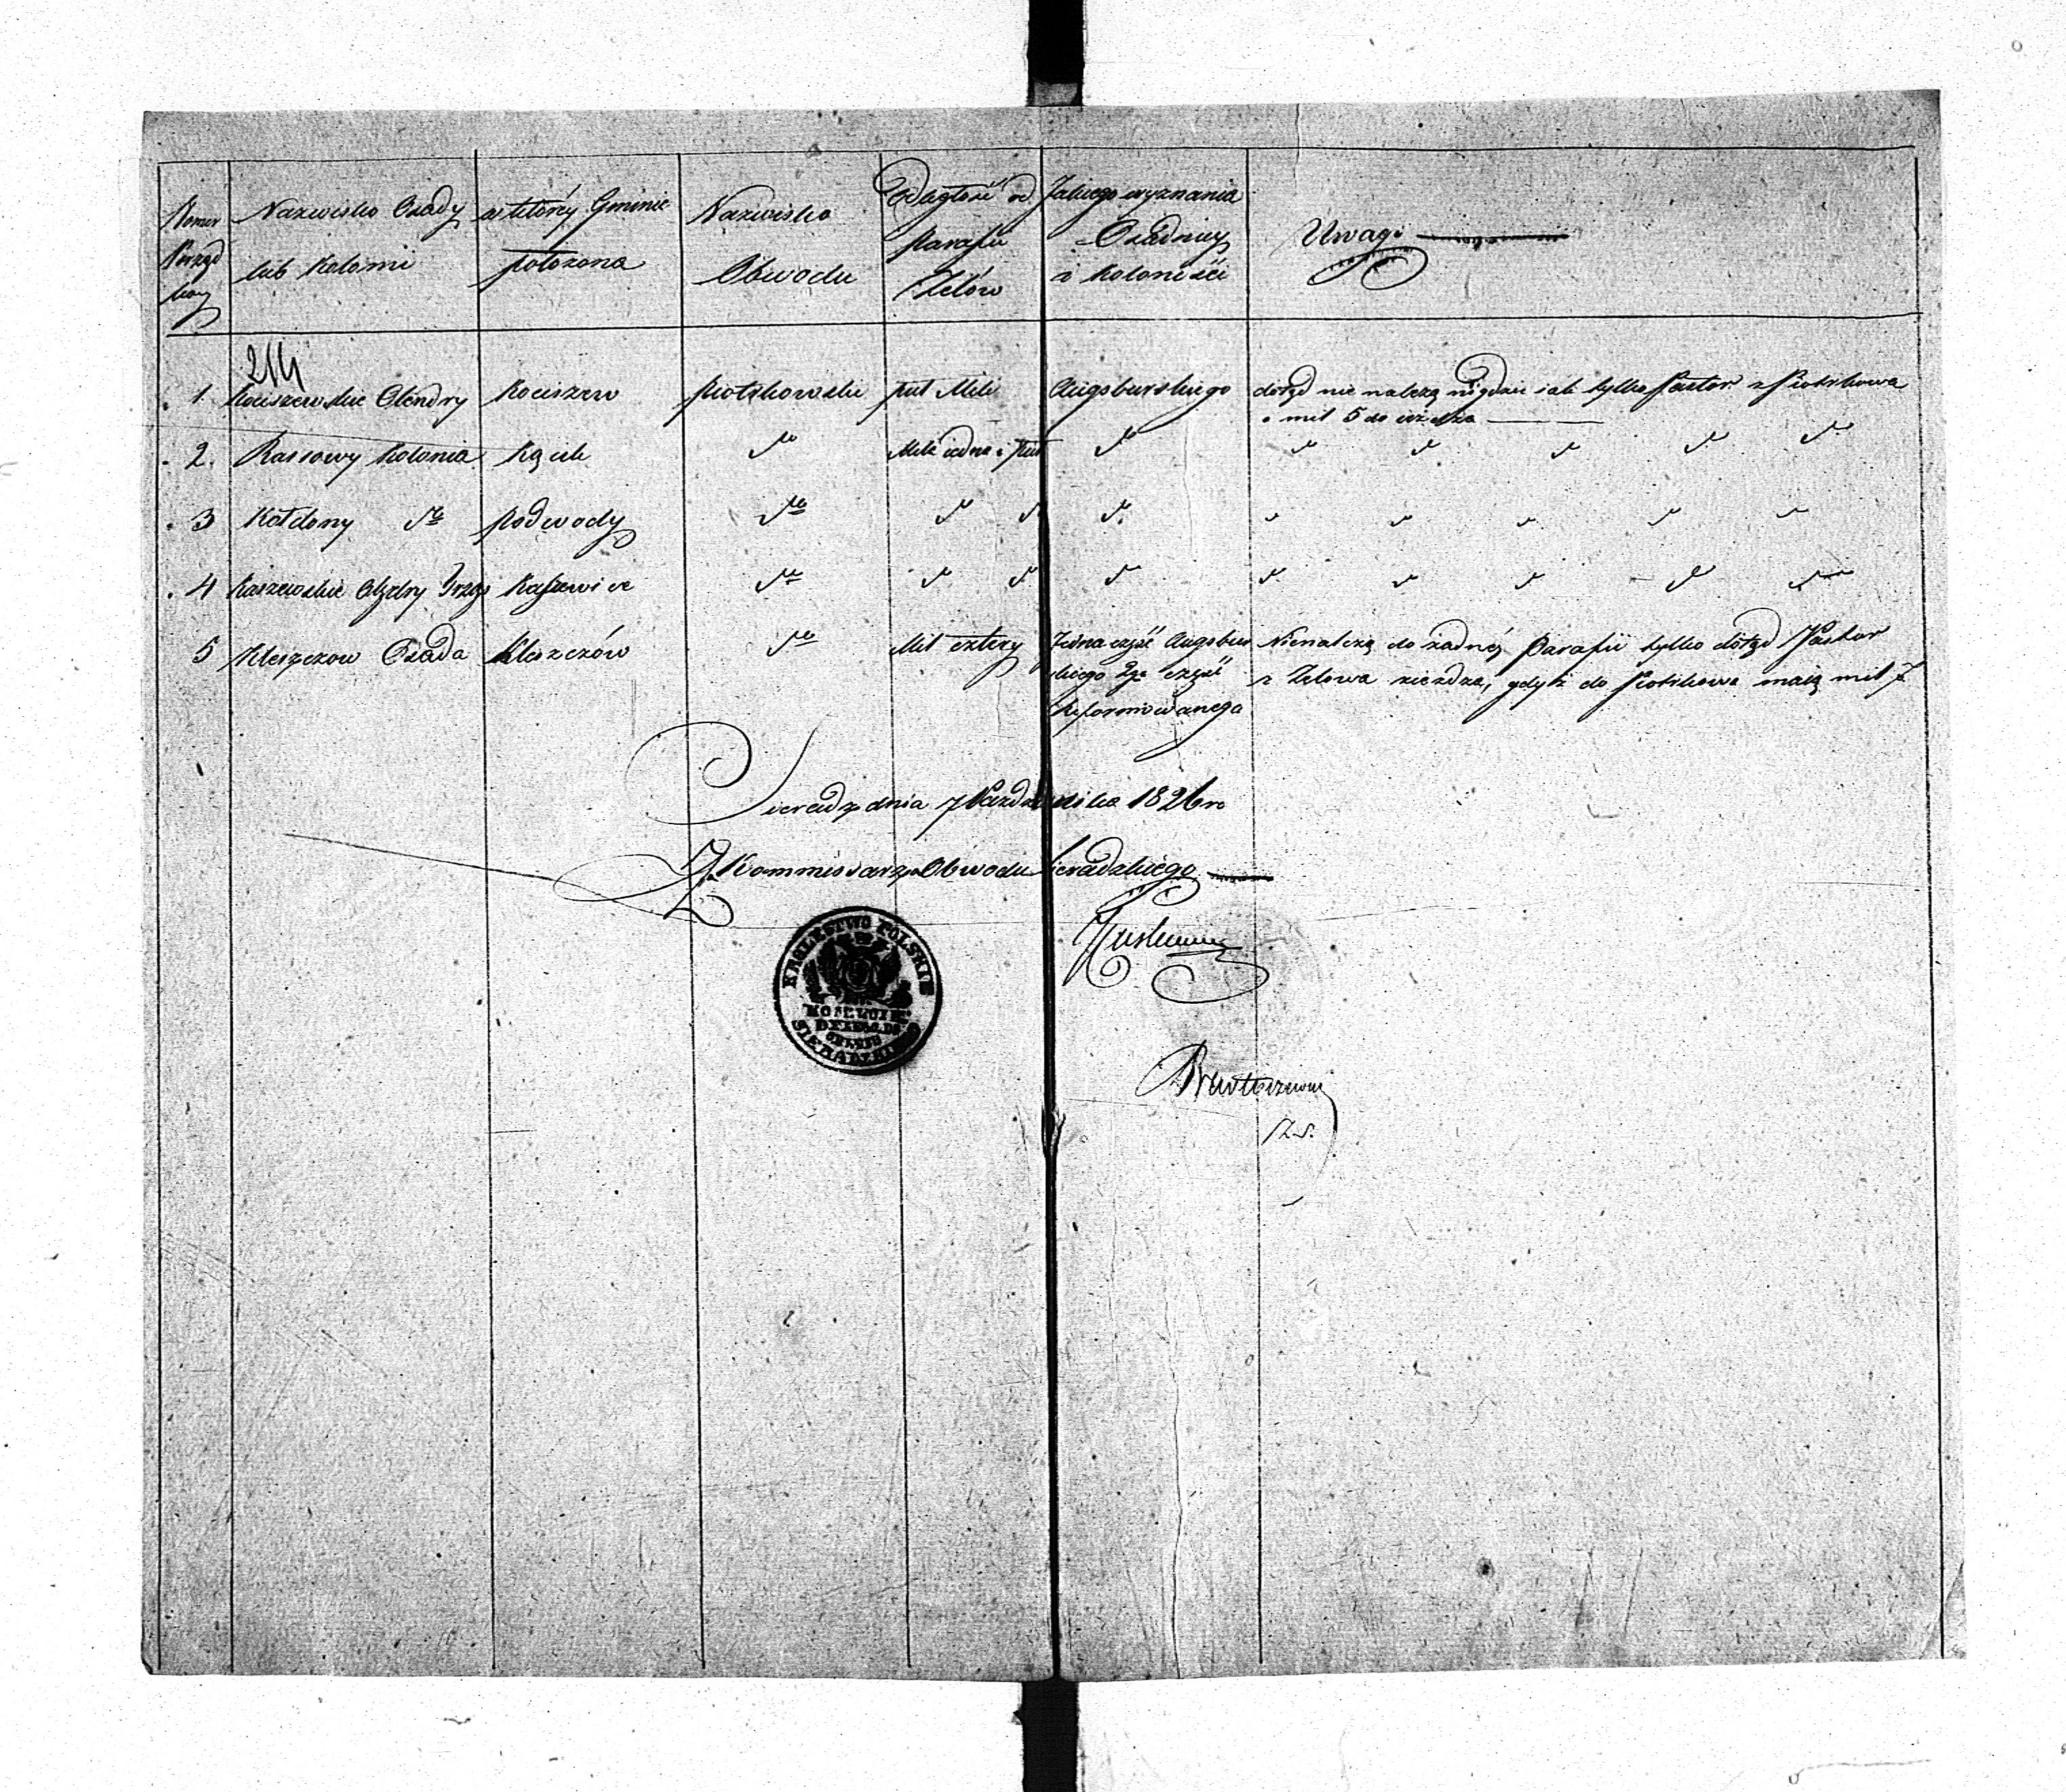 Numer Porządkowy
Nazwisko Osady lub Kolonii
w któréy Gminie położona
Nazwisko Obwodu
Odległość od Parafii Zelów
Jakiego wyznania Osadnicy i Koloniści
Uwagi
214
1 Kociszewskie Olendry Kociszew Piotrkowski puł Mili Augsburskiego dotąd nie należą nigdzie iak tylko Pastor z Piotrkowa
o mil 5 do
2. Rassowy Kolonia Kącik do Mila iedna i puł do
3 Kołdony do Podwody do
4 Kaszewskie Kaszewice do
5 Kleszczow Osada Kleszczów do Mil cztery Jedna część Augsburskiego 2ga część Reformowanego Nienależą do żadnéj Parafii tylko dotąd Pastor
z Zelowa zieżdza, gdyż do Piotrkowa maią mil 7
Sieradz dnia 7 Października 1826 r
Kommissarz Obwodu Sieradzkiego
KRÓLESTWO POLSKIE
SIERADZKIEGO